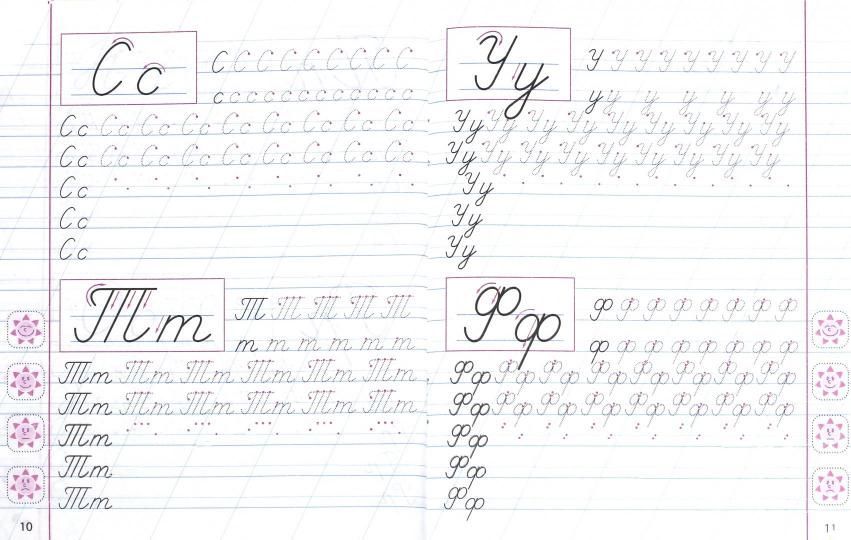 Сс
С С С С С С С С С
с с с с с с с с с с с с с
Сс Сс Сс Сс Сс Сс Сс Сс Сс
Сс Сс Сс Сс Сс Сс Сс Сс Сс
Сс
Сс
Сс
Тт
Т Т Т Т Т
т т т т т т
Тт Тт Тт Тт Тт Тт
Тт Тт Тт Тт Тт Тт
Тт
Тт
Тт
10
Уу
У У У У У У У У У
у у у у у у у
Уу Уу Уу Уу Уу Уу Уу Уу Уу
Уу Уу Уу Уу Уу Уу Уу Уу Уу
Уу
Уу
Уу
Фф
Ф Ф Ф Ф Ф Ф Ф Ф
ф ф ф ф ф ф ф ф
Фф Фф Фф Фф Фф Фф Фф Фф
Фф Фф Фф Фф Фф Фф Фф Фф
Фф
Фф
Фф
11